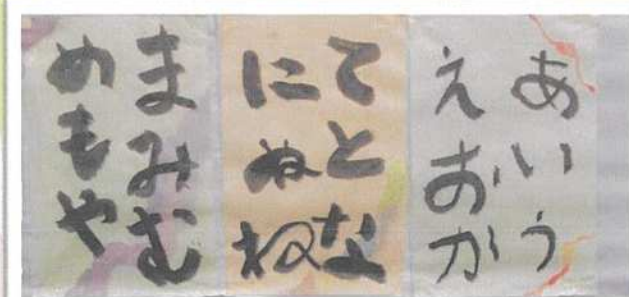 あいう
えおか
てとな
にぬね
まみむ
めもや